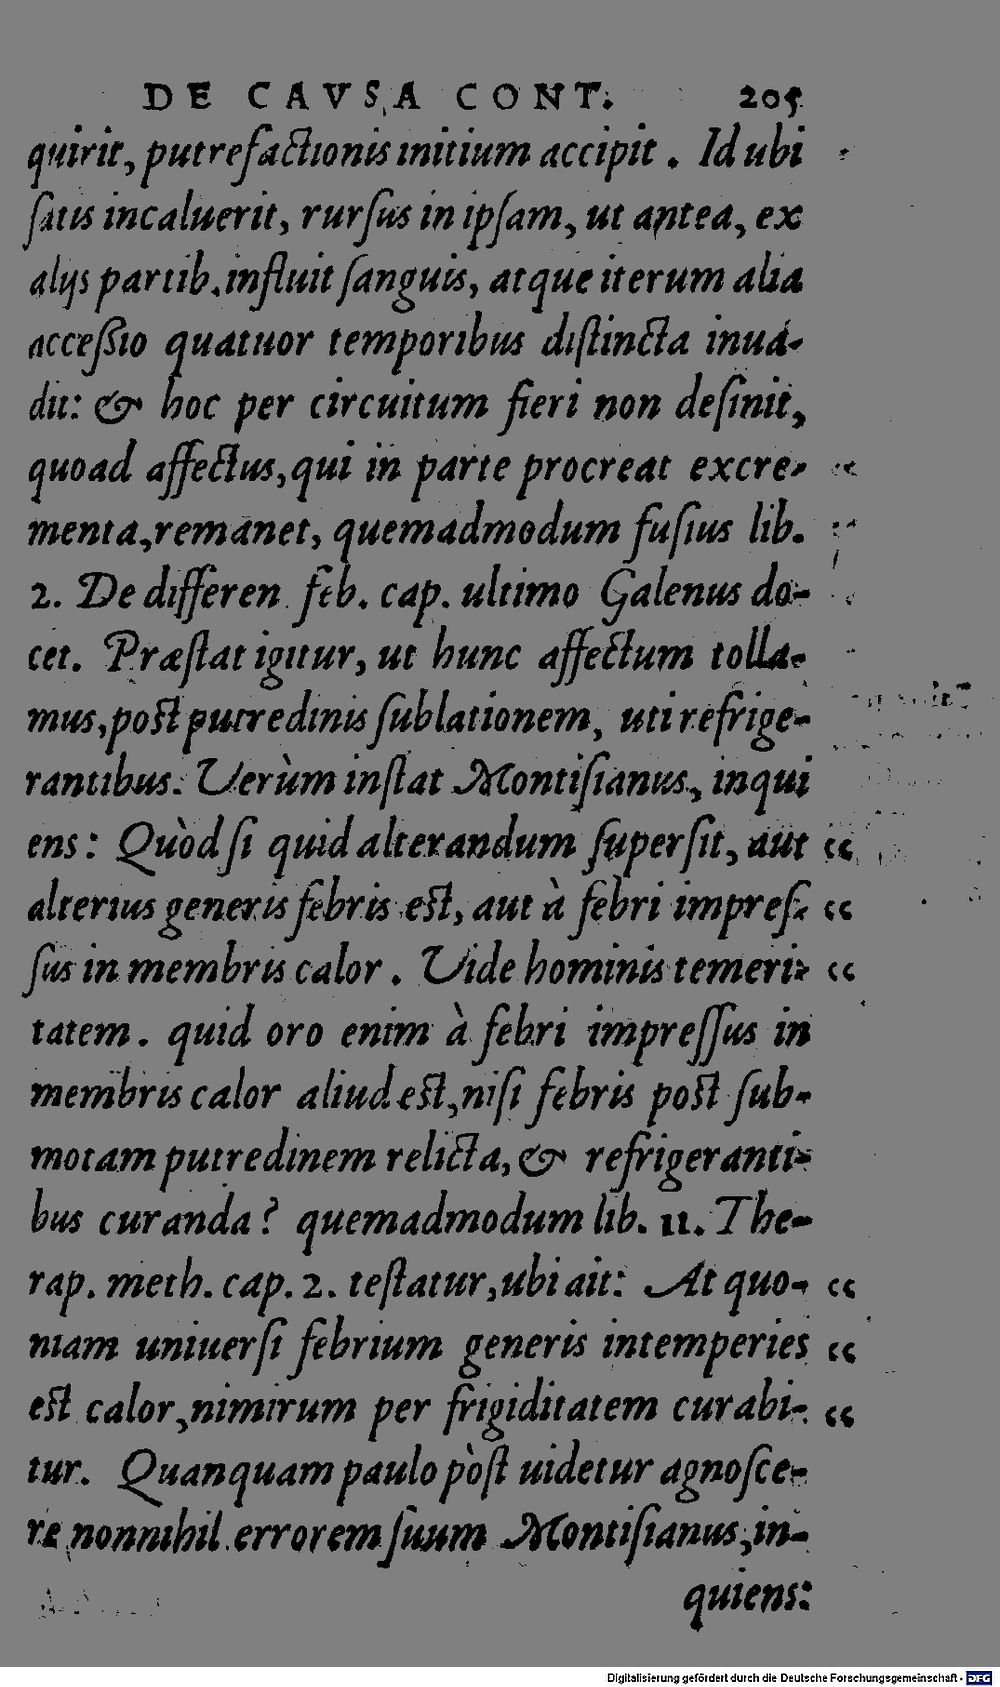 DE CAVSA CONT. 205
quirit, putrefactionis initium accipit. Id ubi
ſatis incaluerit, rurſus in ipſam, ut antea, ex
alijs partib. influit ſanguis, atque iterum alia
acceßio quatuor temporibus diſtincta inua-
dit: & hoc per circuitum fieri non deſinit,
quoad affectus, qui in parte procreat excre-
menta, remanet, quemadmodum fuſius lib.
2. De differen feb. cap. ultimo Galenus do-
cet. Præſtat igitur, ut hunc affectum tolla-
mus, poſt putredinis ſublationem, uti refrige-
rantibus. Verùm inſtat Montiſianus, inqui
ens: Quòd ſi quid alterandum ſuperſit, aut “
alterius generis febris est, aut à febri impreſ- “
ſus in membris calor. Vide hominis temeri- “
tatem. quid oro enim à febri impreſſus in
membris calor aliud est, niſi febris post ſub-
motam putredinem relicta, & refrigeranti-
bus curanda? quemadmodum lib. 11. The-
rap. meth. cap. 2. teſtatur, ubi ait: At quo- “
niam uniuerſi febrium generis intemperies “
est calor, nimirum per frigiditatem curabi- “
tur. Quanquam paulo pòſt uidetur agnoſce-
re nonnihil errorem ſuum Montiſianus, in-
quiens:
Digitalisierung gefördert durch die Deutsche Forschungsgemeinschaft - DFG